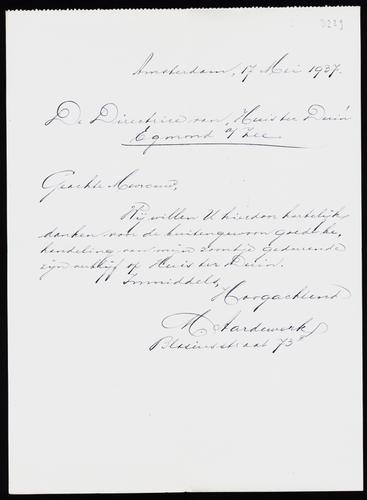 3229
Amsterdam, 17 Mei 1937.
De Directrice van "Huis ter Duin
Egmond a/ Zee
Geachte Mevrouw,
Wij willen U hierdoor hartelijk
danken voor de buitengewoon goede be,
handeling van mijn zoontje gedurende
zijn verblijf op Huis ter Duin.
Inmiddels,
Hoogachtend
M Aardewerk
Blasiusstraat 73